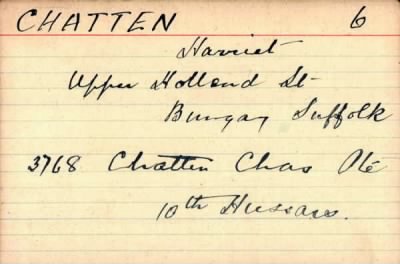 CHATTEN 6
Harriet
Upper Holland St
Bungay Suffolk
3768 Chatten Chas Pte
10th Hussars.